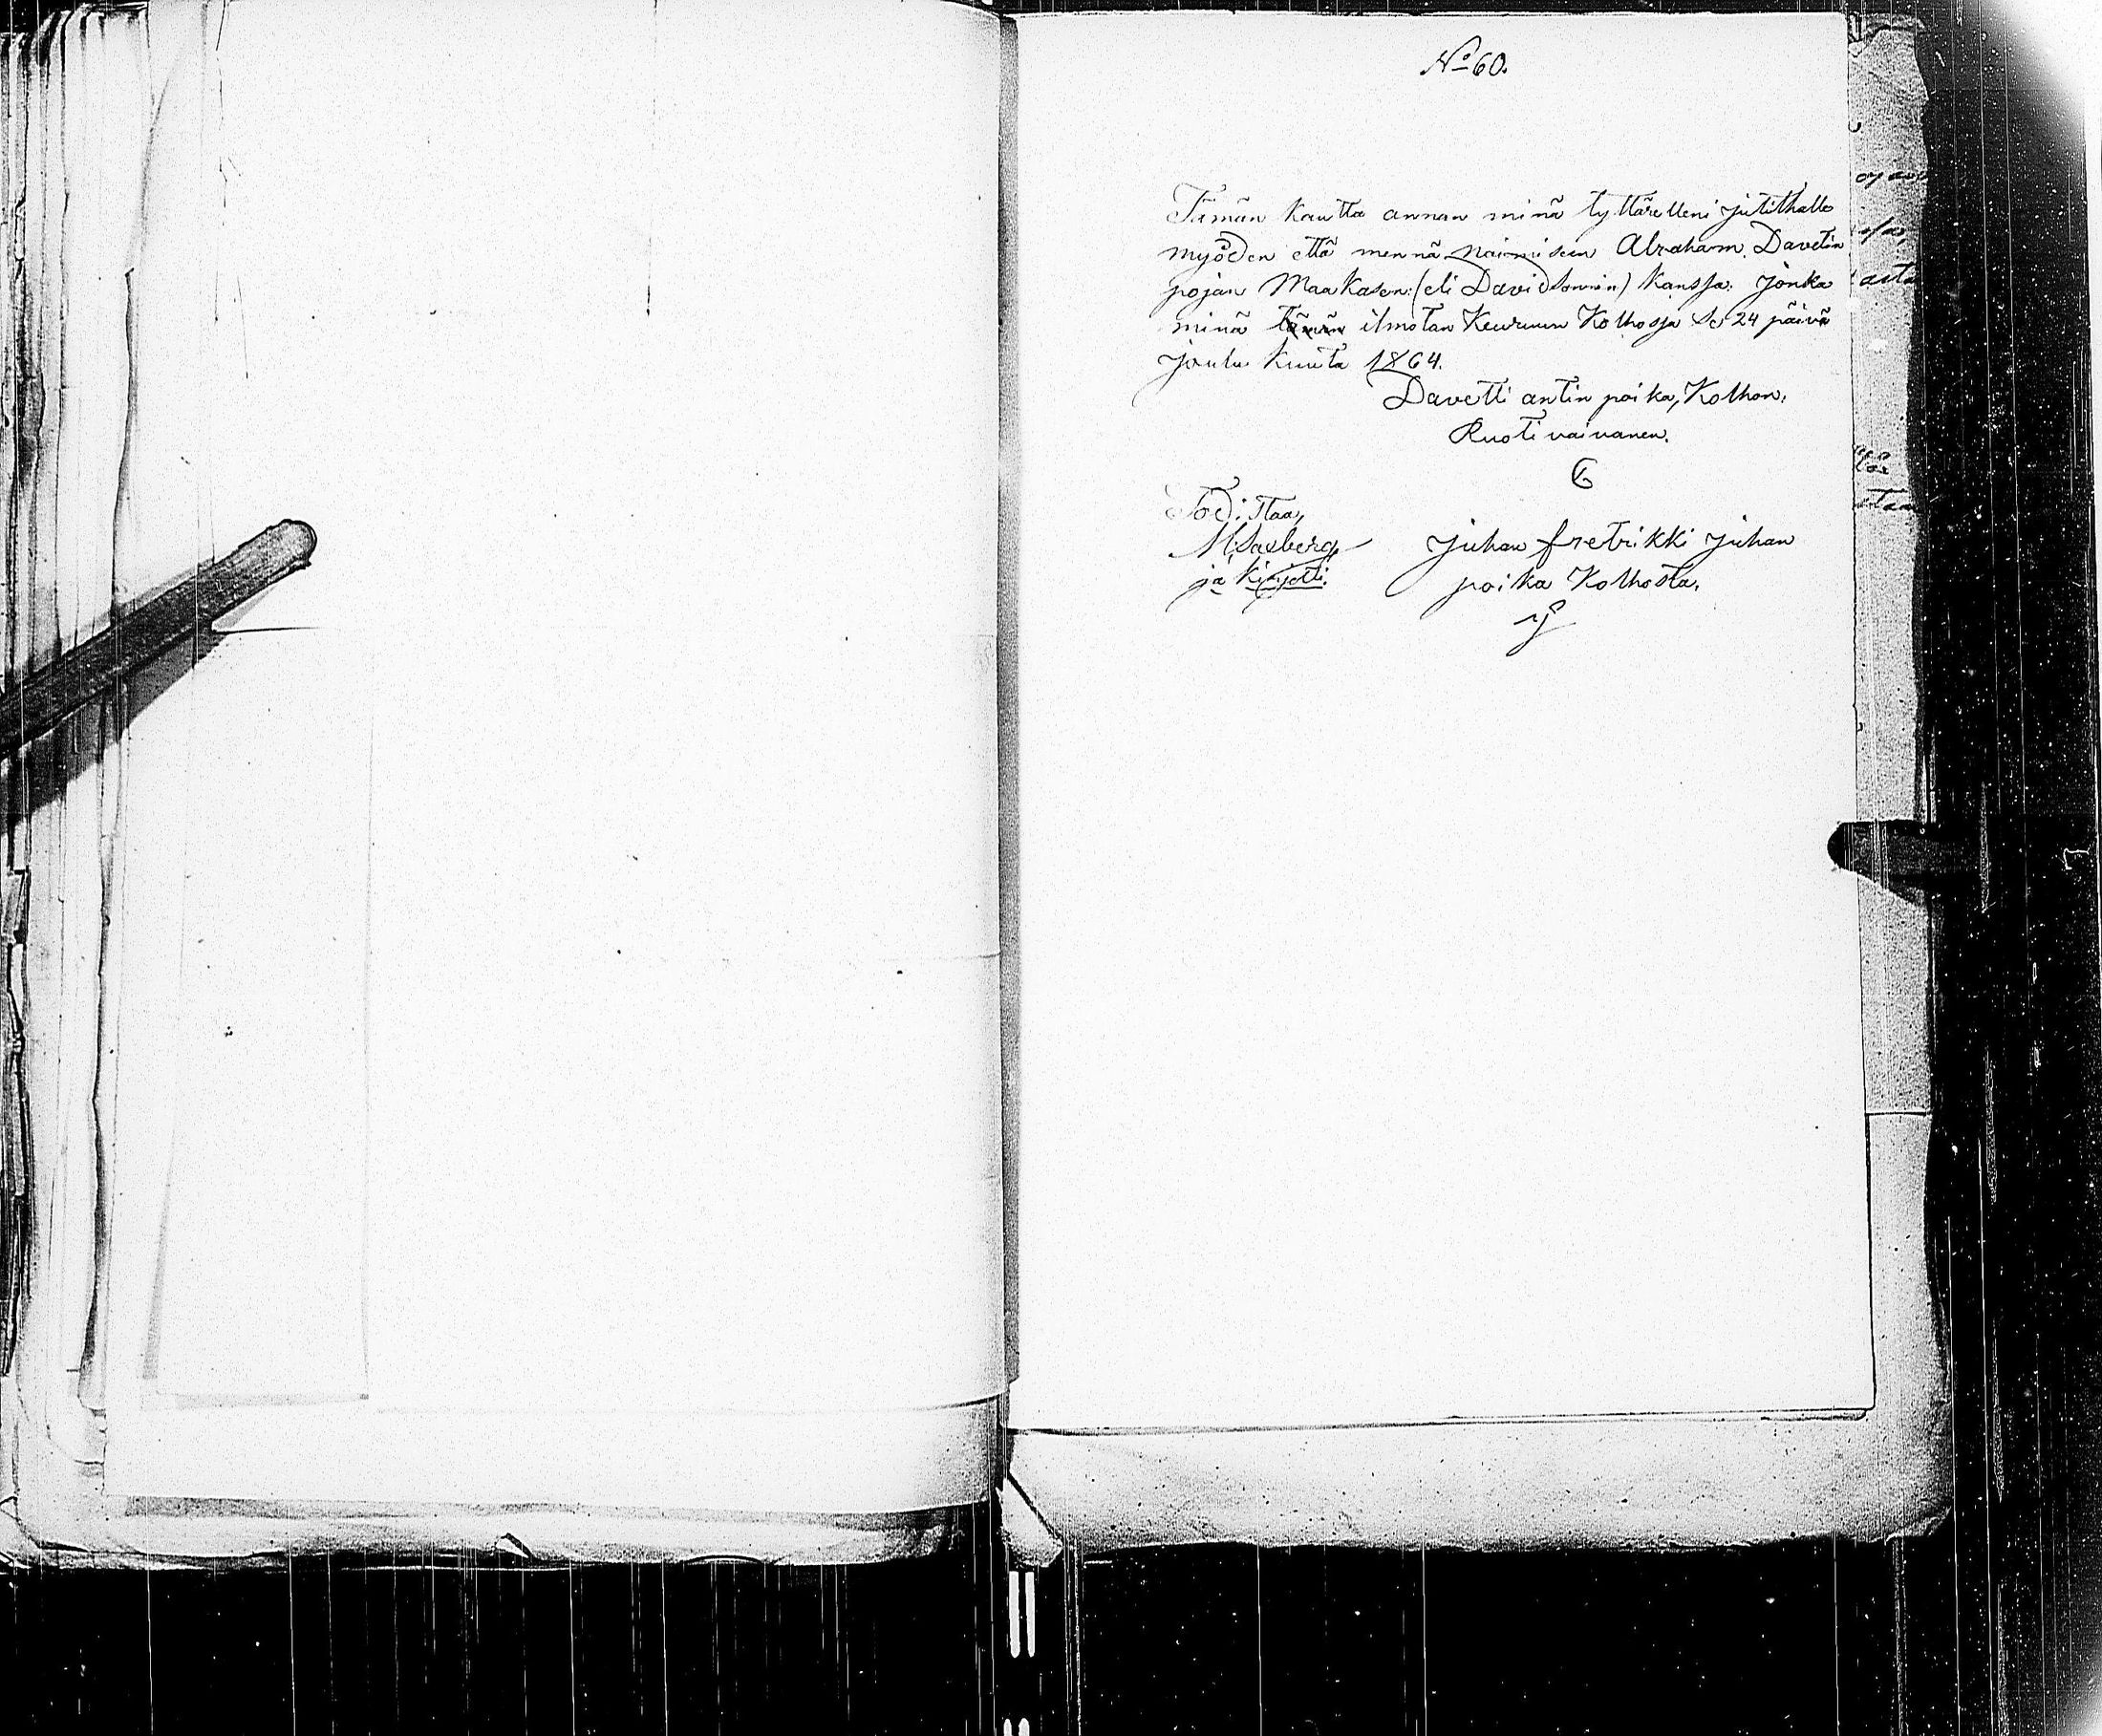 No 60.
Tämän kautta annan minä tyttärelleni jutithalle
myöden että mennä naimiseen Abraham Davetin
pojan Maakasen (eli Davidsonnin) kanssa. jonka
minä tämän ilmotan Keuruun Kolhossa se 24 päivä
joulu kuuta 1864.
Davetti antin poika, Kolhon,
Ruoti vaivanen.
Todistaa,
M. Saxberg
ja kirjotti.
juhan fretrikki juhan
poika Kolhosta,